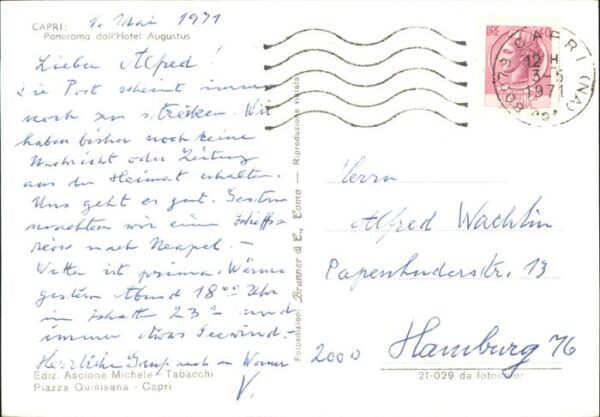 1. Mai 1971
CAPRI:
Panorama dall'Hotel Augustus
Lieber Alfred!
Die Post scheint immer
noch zu streiken. Wir
haben bisher noch keine
Nachricht oder Zeitung
aus der Heimat erhalten.
Uns geht es gut. Gestern
machten wir eine Schiffs-
reise nach Neapel. -
Wetter ist prima. Wärme
gestern Abend 18°° Uhr
im Schatten 23° und
immer etwas Seewind. -
Herzliche Grüße auch an
V.
Ediz. Ascione Michele - Tabacchi
Piazza Quisisana - Capri
Fotoedizioni Brunner & C., Como - Riproduzione vietata
LIRE 40
CAPRI (NA)
12 H
3-5
1971
Herrn
Alfred Wachlin
Papenhuderstr. 13
2000 Hamburg 76
21-029 da fotocolor